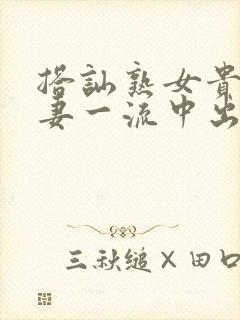 搭訕熟女貴
妻一流中出
三秋縋×田口